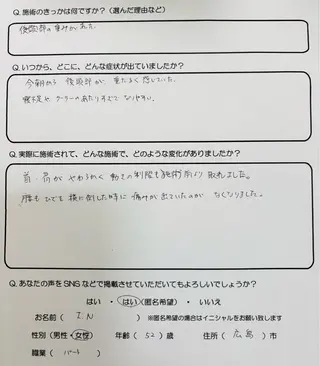 Q. 施術のきっかけは何ですか？（選んだ理由など）
後頭部の重みがあった。
Q. いつから、どこに、どんな症状が出ていましたか？
今朝から 後頭部が 重たるく感じていた。
寝不足や クーラーのあたりすぎで なりやすい。
Q. 実際に施術されて、どんな施術で、どのような変化がありましたか？
首・肩が やわらかく 動きの制限も施術前より 取れました。
腰も ひざを 横に倒した時に 痛みが出ていたのが なくなりました。
Q. あなたの声をSNSなどで掲載させていただいてもよろしいでしょうか？
はい ・ はい（匿名希望） ・ いいえ
お名前（ I.N ） ※匿名希望の場合はイニシャルをお願い致します
性別（男性・女性） 年齢（ 52 ）歳 住所（ 広島 ）市
職業（ パート ）